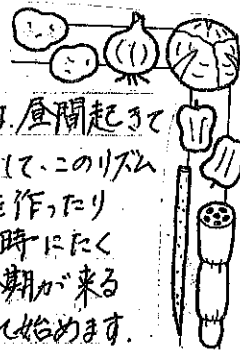 昼間起きて
して、このリズム
を作ったり
時にたく
期が来る
て始めます。